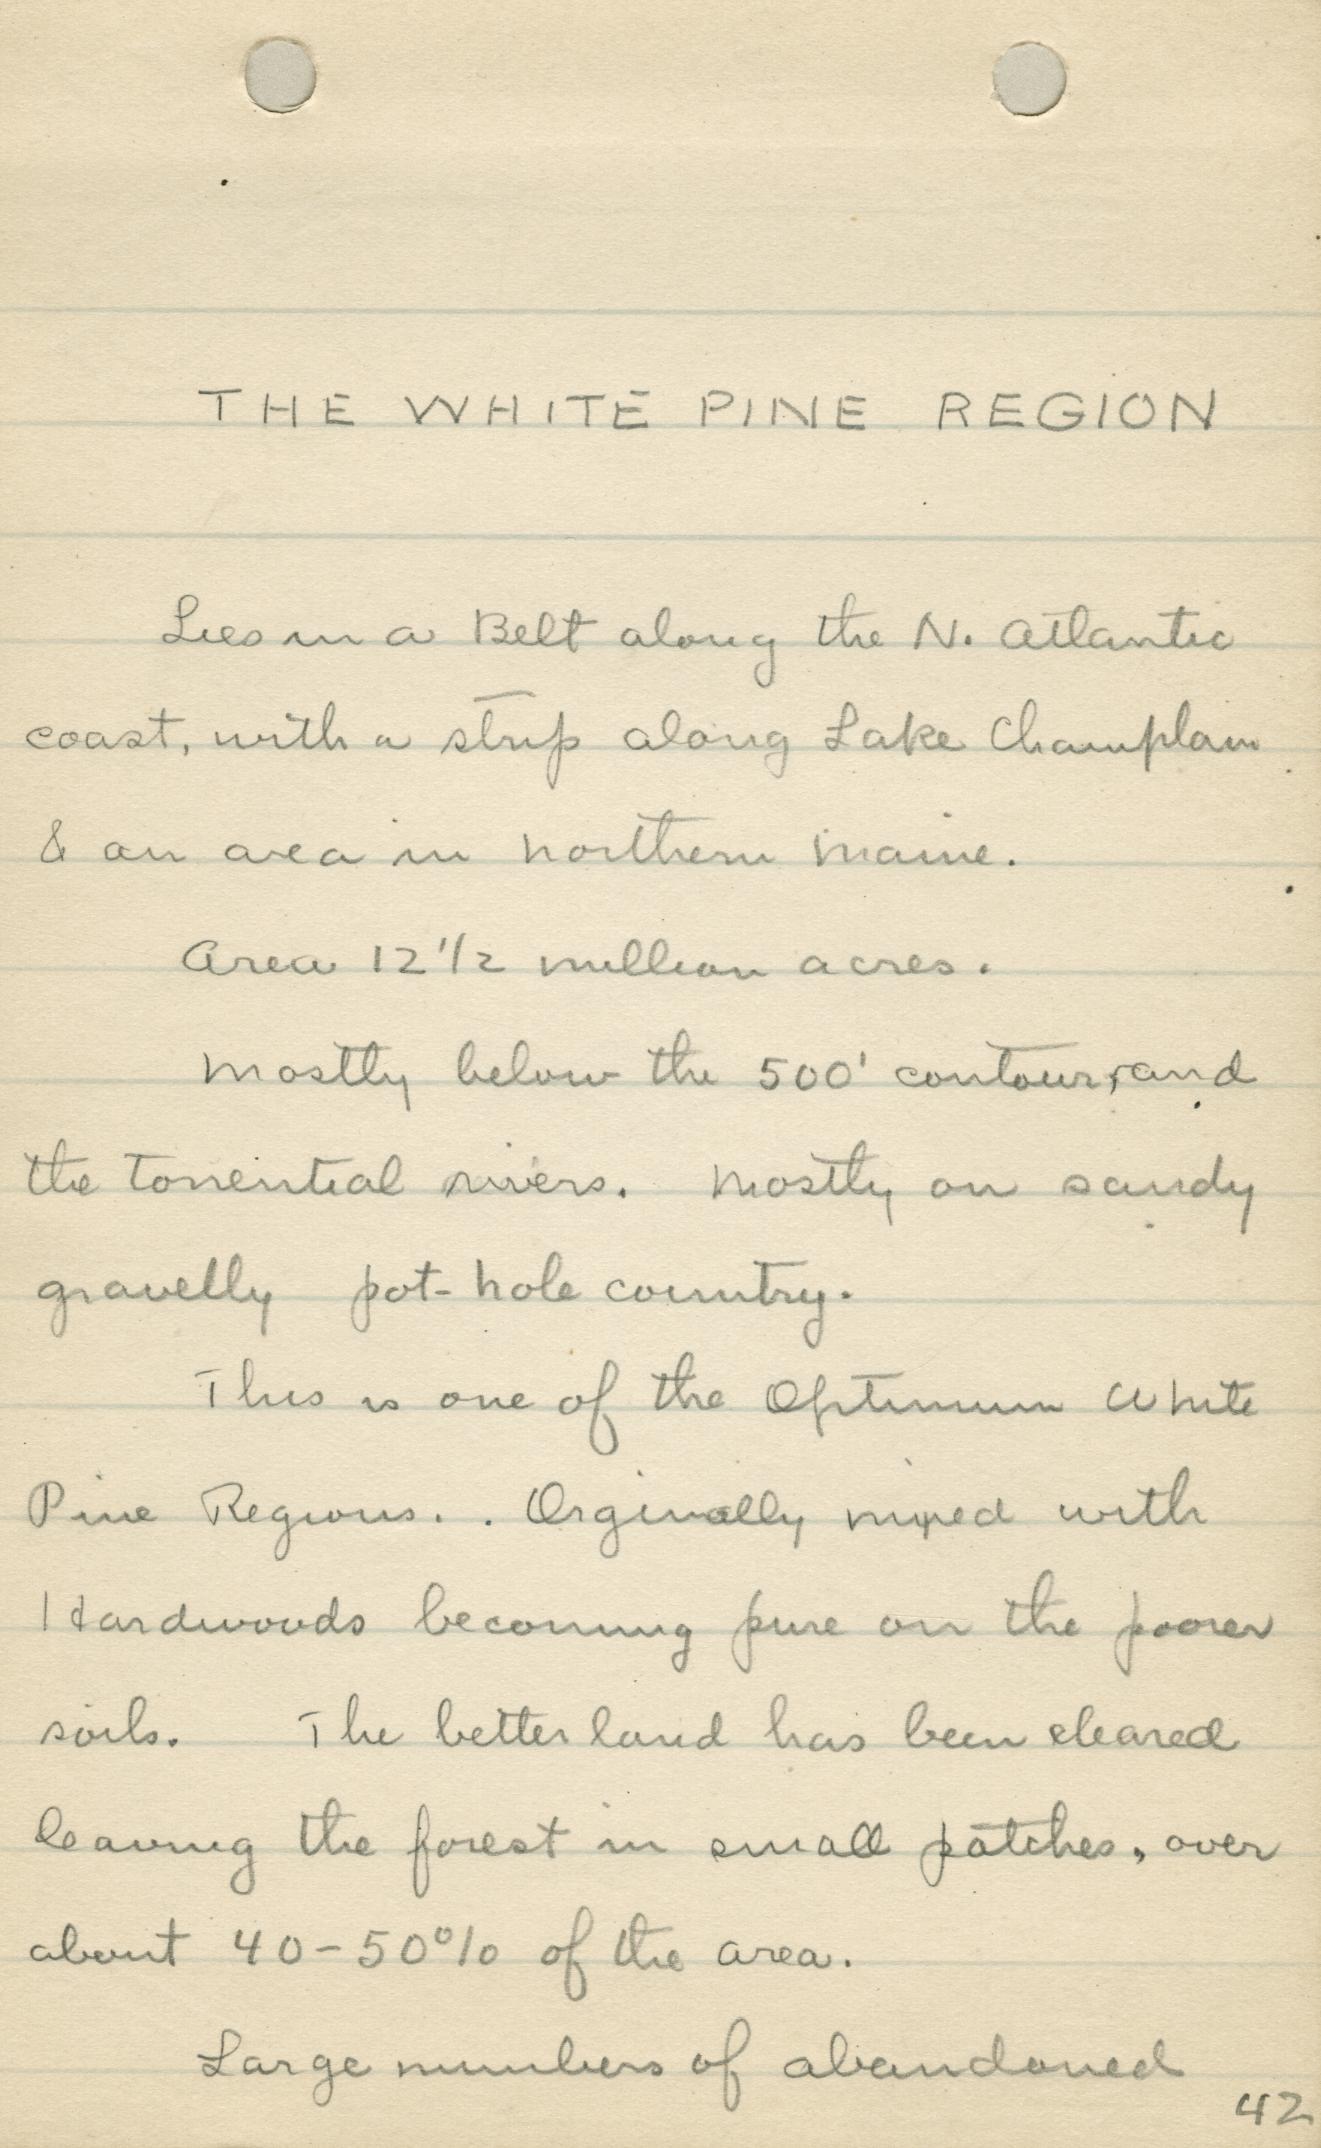 THE WHITE PINE REGION
Lies in a Belt along the N. Atlantic
coast, with a strip along Lake Champlain
& an area in northern Maine.
Area 12 1/2 million acres.
Mostly below the 500' contour, and
the torrential rivers. Mostly on sandy
gravelly pot-hole country.
This is one of the Optimum White
Pine Regions. . Orginally mixed with
Hardwoods becoming pure on the poorer
soils. The better land has been cleared
leaving the forest in small patches, over
about 40-50% of the area.
Large numbers of abandoned
42